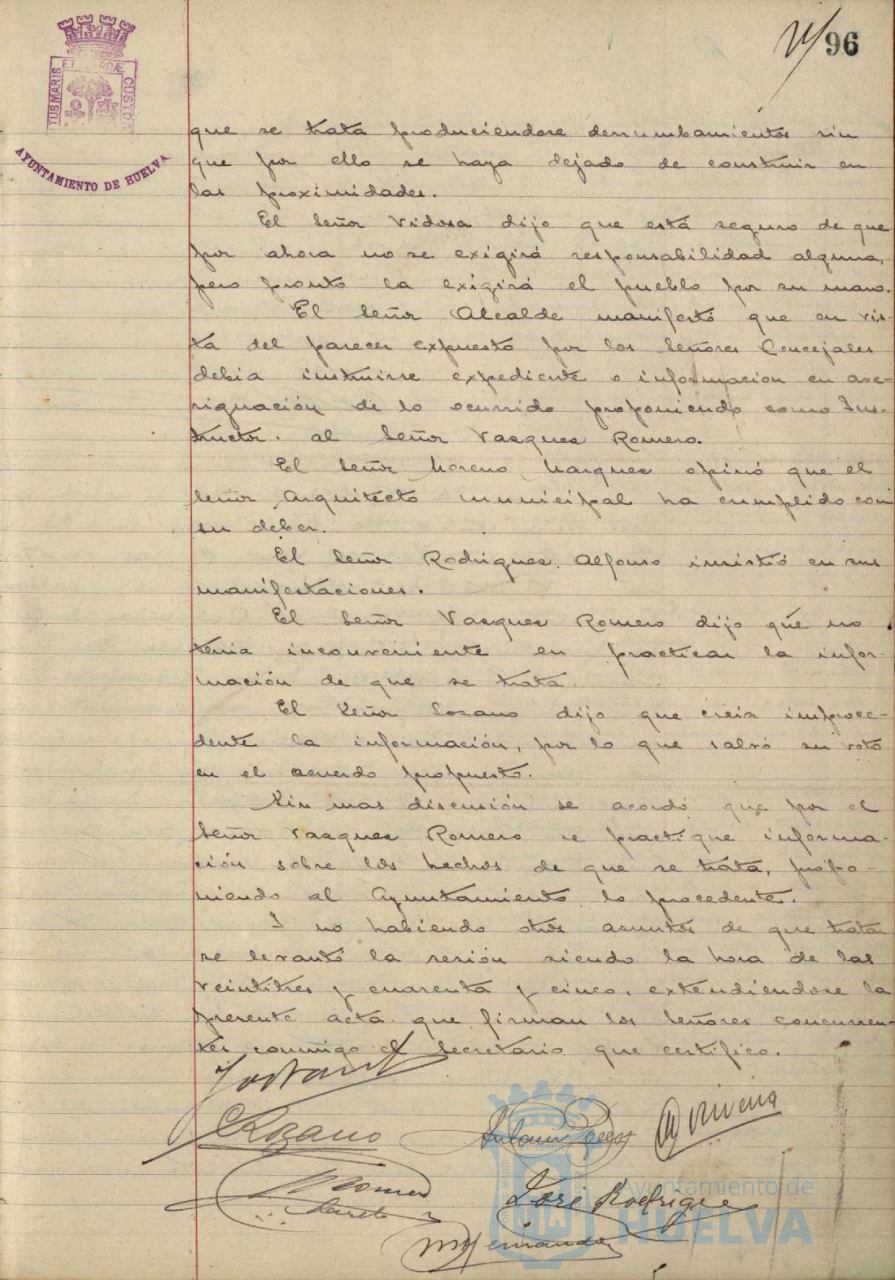 96
PORTUS MARIS ET TERRÆ CUSTODIA
AYUNTAMIENTO DE HUELVA
que se trata produciendose derrumbamientos sin
que por ello se haya dejado de construir en
las proximidades.
El Señor Vidosa dijo que está seguro de que
por ahora no se exigirá responsabilidad alguna,
pero pronto la exigirá el pueblo por su mano.
El Señor Alcalde manifestó que en vis-
ta del parecer expuesto por los Señores Concejales
debia instruirse expediente o informacion en ave-
riguación de lo ocurrido proponiendo como Ins-
tructor al Señor Vasques Romero.
El Señor Moreno Marques opinó que el
Señor Arquitecto municipal ha cumplido con
su deber.
El Señor Rodrigues Alfonso insistió en sus
manifestaciones.
El Señor Vasques Romero dijo que no
tenia inconveniente en practicar la infor-
mación de que se trata.
El Señor Lozano dijo que creia improce-
dente la información, por lo que salvó su voto
en el acuerdo propuesto.
Sin mas discusión se acordó que por el
Señor Vasques Romero se practique informa-
ción sobre los hechos de que se trata, propo-
niendo al Ayuntamiento lo procedente.
I no habiendo otros asuntos de que tratar
se levantó la sesión siendo la hora de las
veintitres y cuarenta y cinco, extendiendose la
presente acta que firman los Señores concurren-
tes conmigo el Secretario que certifico.
Lozano
José Rodrigue
M Hernandez
Ayuntamiento de
HUELVA